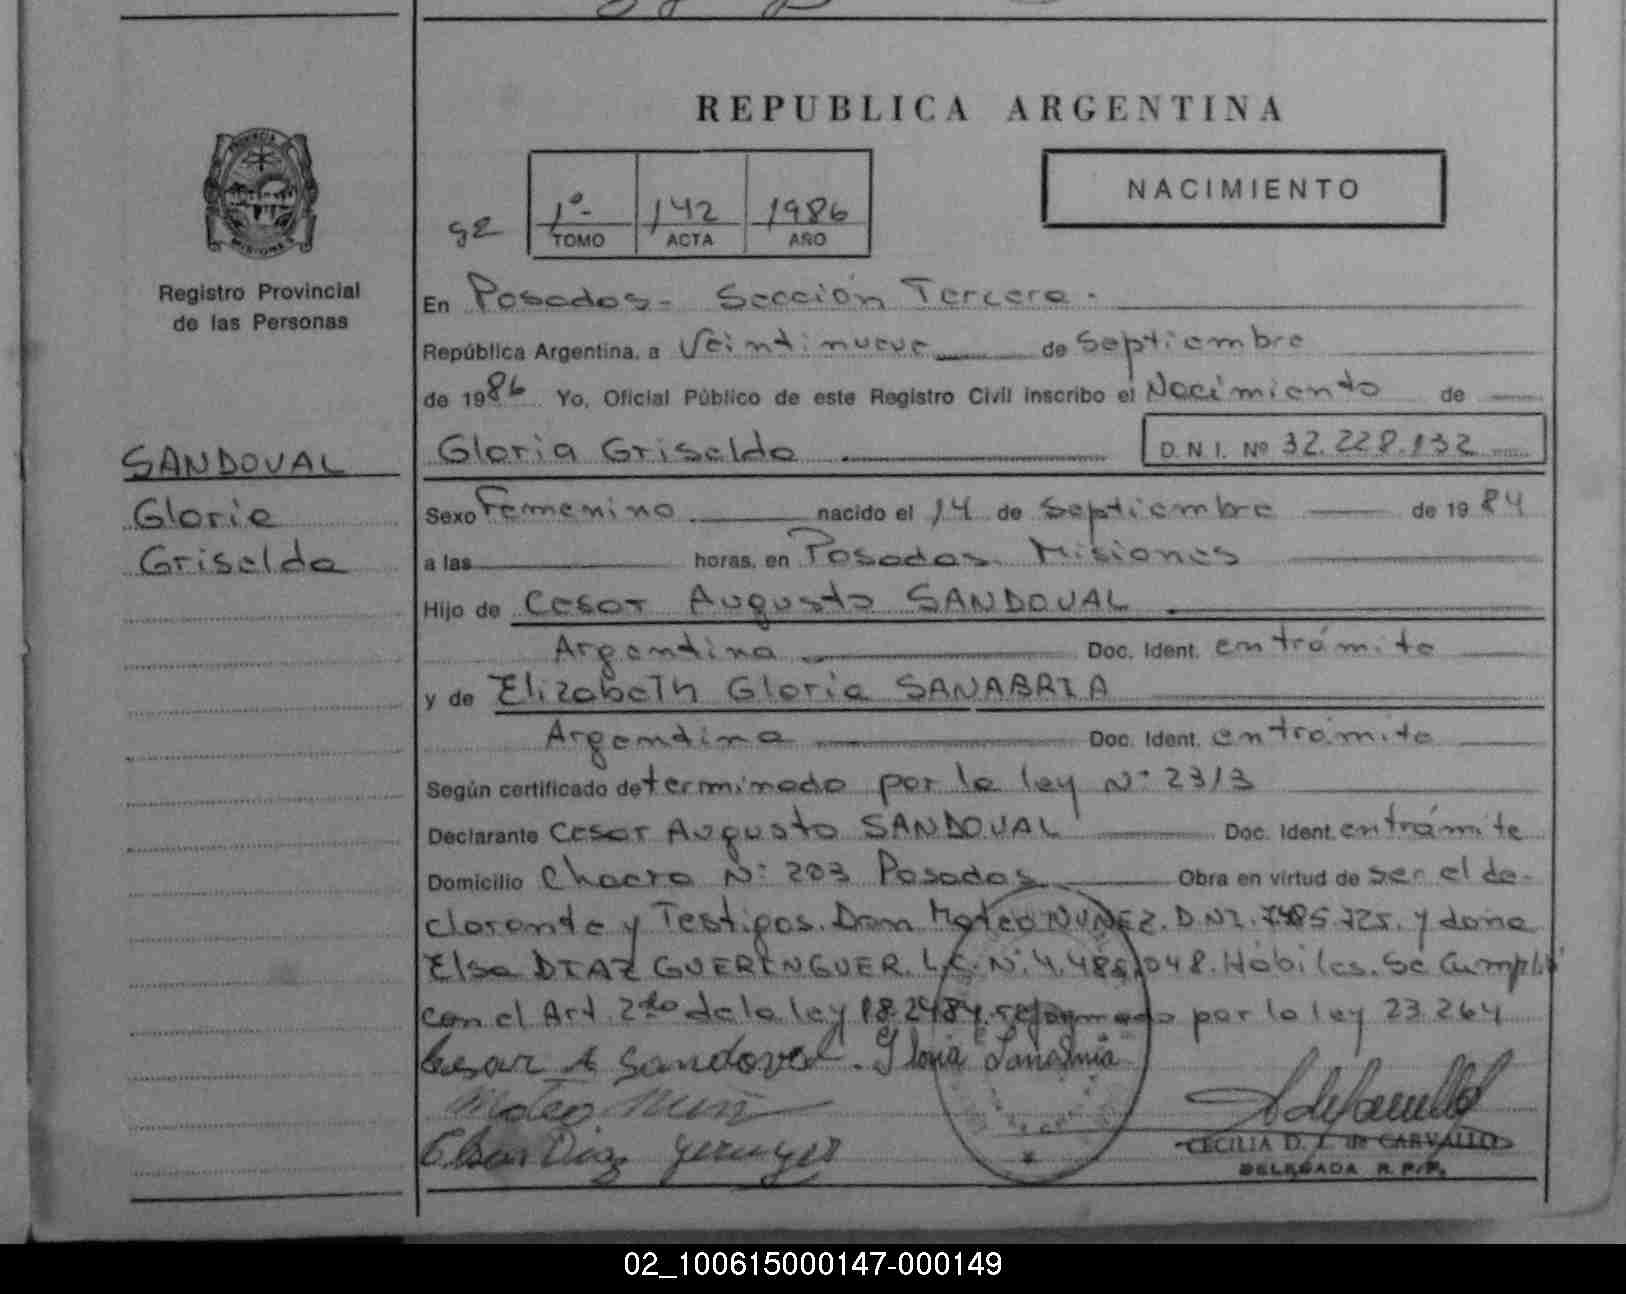 REPUBLICA ARGENTINA
PROVINCIA
MISIONES
Registro Provincial
de las Personas
NACIMIENTO
1º- 142 1986
TOMO ACTA AÑO
En Posadas - Sección Tercera -
República Argentina, a Veintinueve de Septiembre
de 1986 Yo, Oficial Público de este Registro Civil inscribo el Nacimiento de
SANDOVAL
Gloria
Griselda
Gloria Griselda D.N.I. Nº 32.228.132
Sexo Femenino nacido el 14 de Septiembre de 1984
a las horas, en Posadas. Misiones
Hijo de Cesar Augusto SANDOVAL
Argentina Doc. Ident. en trámite
y de Elizabeth Gloria SANABRIA
Argentina Doc. Ident. en trámite
Según certificado determinado por la ley Nº 2313
Declarante Cesar Augusto SANDOVAL Doc. Ident. en trámite
Domicilio Chacra Nº 203 Posadas Obra en virtud de ser el de-
clarante y Testigos. Don Mateo NUÑEZ. D.N.I. 7.485.725. y doña
Elsa DIAZ GUERINGUER. L.C. Nº 4.486.048. Hábiles. Se Cumplió
con el Art. 2do de la ley 18.248 reformado por la ley 23.264
Cesar A Sandoval. Gloria Sanabria
Mateo Nuñ
Elsa Diaz
CECILIA D. de CARVALLO
DELEGADA R.P.P.
02_100615000147-000149